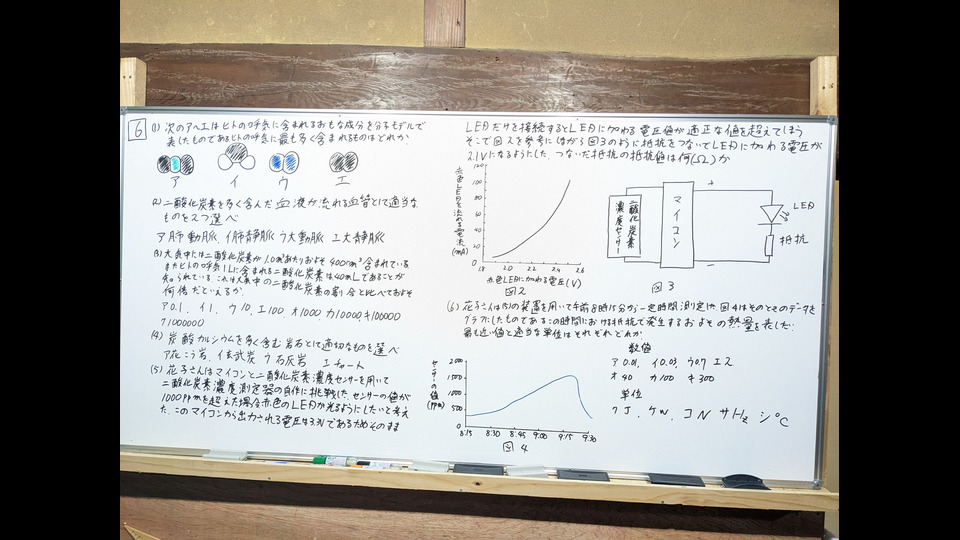 6
(1) 次のア〜エはヒトの呼気に含まれるおもな成分を分子モデルで
表したものであるヒトの呼気に最も多く含まれるものはどれか.
ア イ ウ エ
(2) 二酸化炭素を多く含んだ血液が流れる血管として適当な
ものを2つ選べ
ア肺動脈、イ肺静脈 ウ大動脈 エ大静脈
(3) 大気中には二酸化炭素が1.0m³あたりおよそ400cm³含まれている
またヒトの呼気1Lに含まれる二酸化炭素は40mLであることが
知られている.これは大気中の二酸化炭素の割合と比べておよそ
何倍だといえるか.
ア0.1. イ1. ウ10. エ100 オ1000 カ10000.キ100000
ク1000000
(4) 炭酸カルシウムを多く含む岩石として適切なものを選べ
ア花こう岩. イ玄武岩 ウ石灰岩 エチャート
(5) 花子さんはマイコンと二酸化炭素濃度センサーを用いて
二酸化炭素濃度測定器の自作に挑戦した.センサーの値が
1000ppmを超えた場合赤色のLEDが光るようにしたいと考え
た.このマイコンから出力される電圧は3.3Vであるためそのまま
LEDだけを接続するとLEDに加わる電圧値が適正な値を超えてしまう
そこで図2を参考にしながら図3のように抵抗をつないでLEDに加わる電圧が
2.1Vになるようにした.つないだ抵抗の抵抗値は何(Ω)か
赤色LEDを流れる電流
(mA)
120
100
80
60
40
20
0
1.8 2.0 2.2 2.4 2.6
赤色LEDに加わる電圧(V)
図2
二酸化炭素
濃度センサー
マイコン
+
−
LED
抵抗
図3
(6) 花子さんは(5)の装置を用いて午前8時15分から一定時間測定した.図4はそのときのデータを
グラフにしたものであるこの時間における抵抗で発生するおよその熱量を表した.
最も近い値と適当な単位はそれぞれどれか
センサーの値
(ppm)
2000
1500
1000
500
0
8:15 8:30 8:45 9:00 9:15 9:30
図4
数値
ア0.01. イ0.03. ウ0.7 エ5
オ40 カ100 キ300
単位
クJ. ケW. コN サHz シ℃